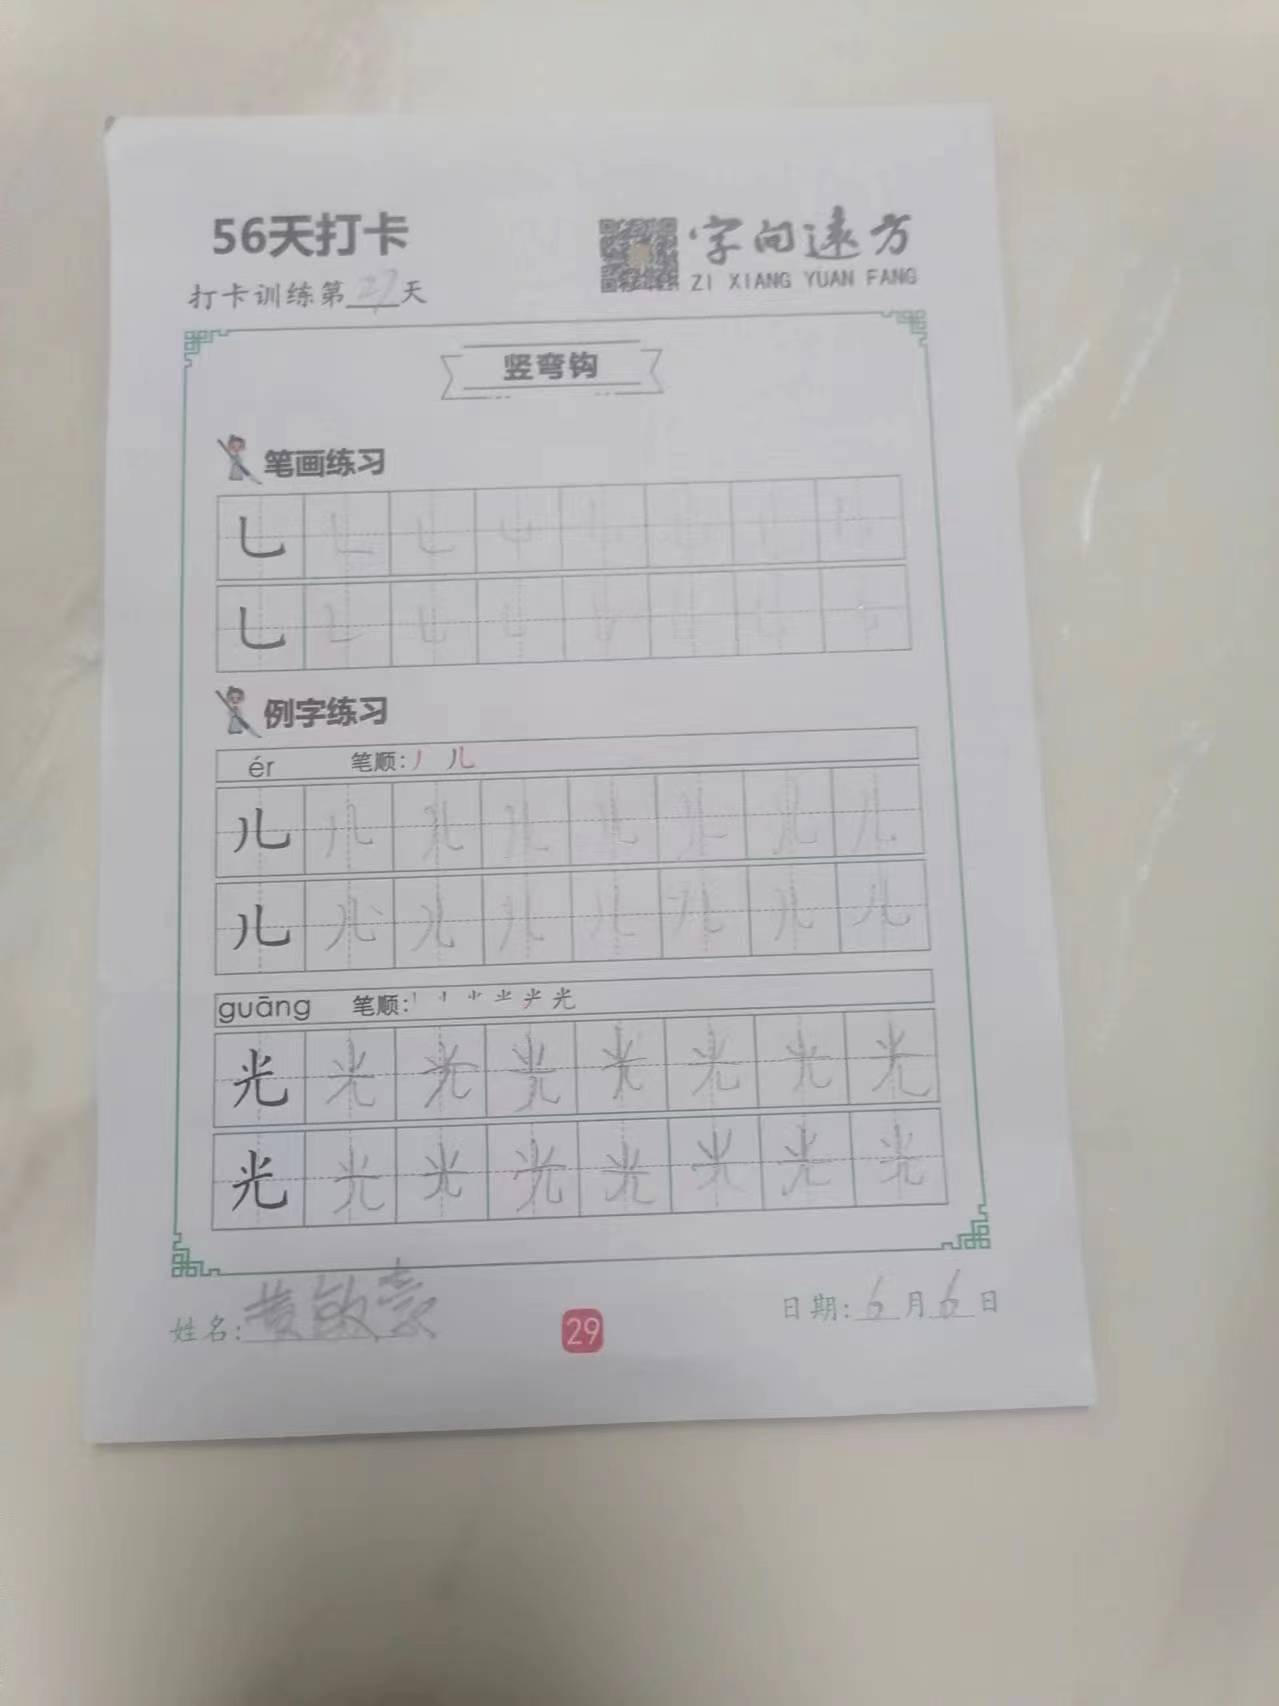 56天打卡
字向远方
ZI XIANG YUAN FANG
打卡训练第27天
竖弯钩
笔画练习
乚 乚 乚 乚 乚 乚 乚 乚
乚 乚 乚 乚 乚 乚 乚 乚
例字练习
ér 笔顺: 丿 儿
儿 儿 儿 儿 儿 儿 儿 儿
儿 儿 儿 儿 儿 儿 儿 儿
guāng 笔顺: 光
光 光 光 光 光 光 光 光
光 光 光 光 光 光 光 光
姓名: 黄敏豪
29
日期: 6月6日